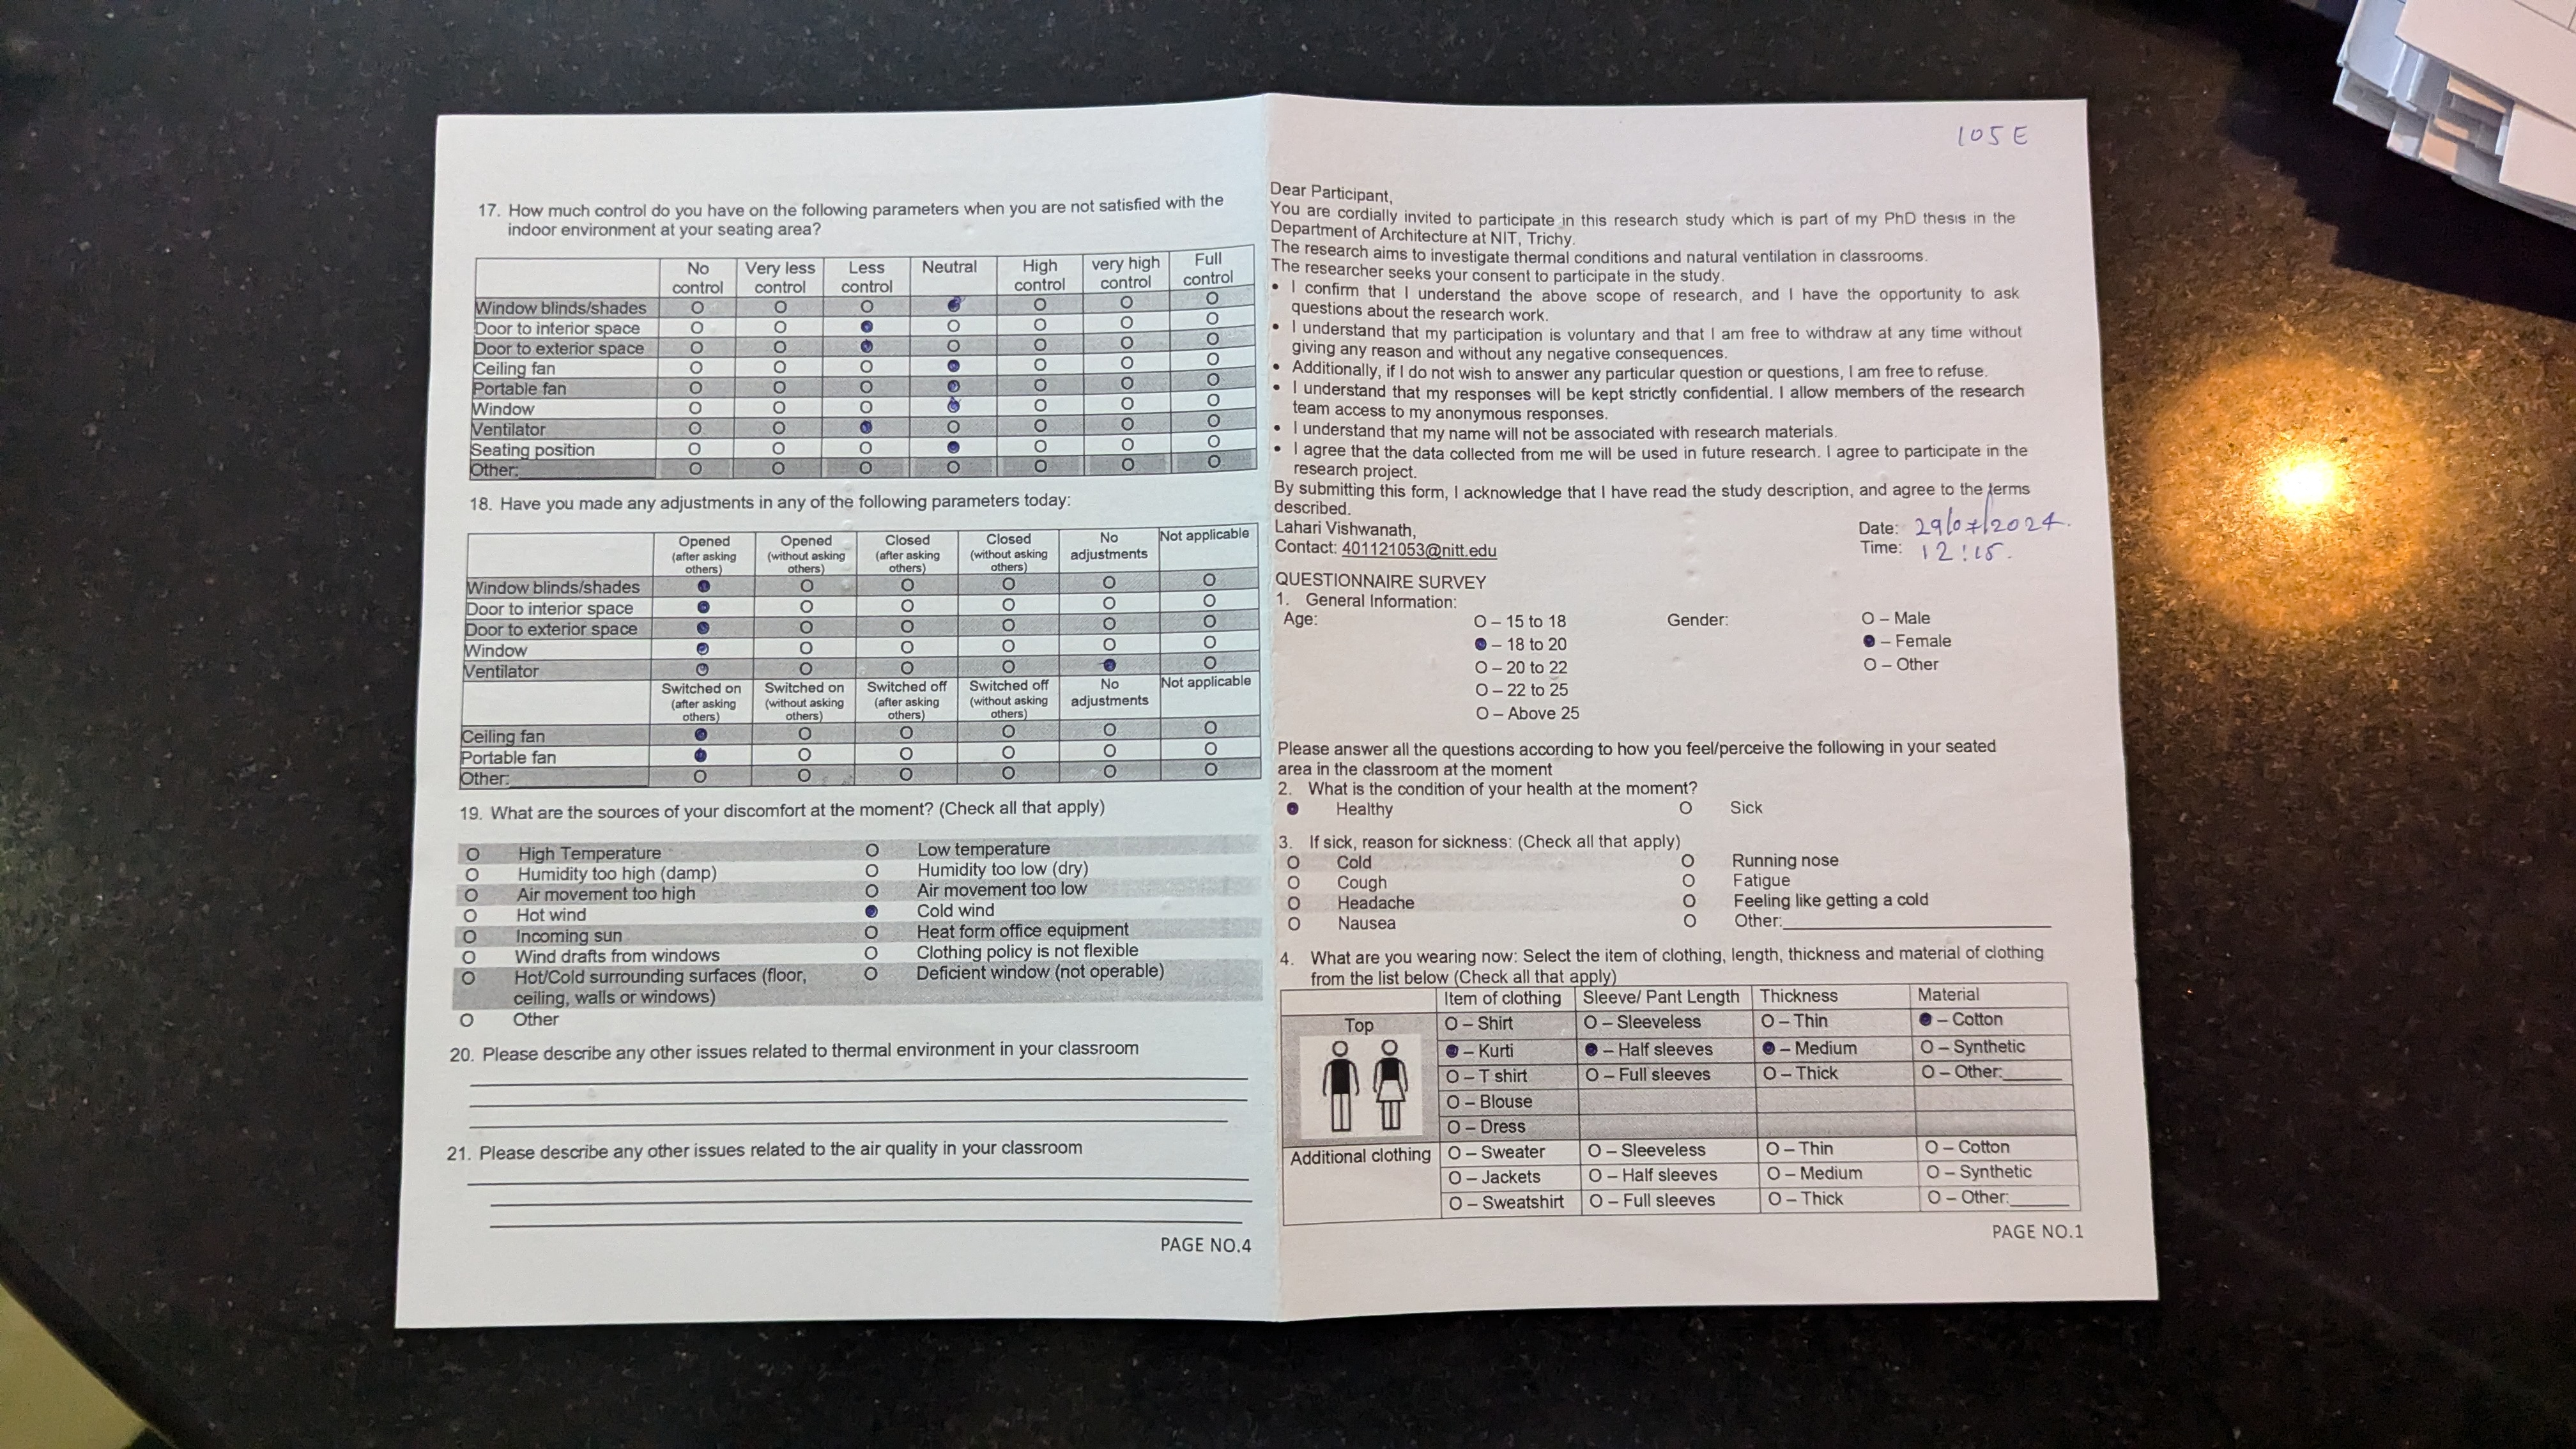 17. How much control do you have on the following parameters when you are not satisfied with the
indoor environment at your seating area?
No control Very less control Less control Neutral High control very high control Full control
Window blinds/shades O O O ● O O O
Door to interior space O O ● O O O O
Door to exterior space O O ● O O O O
Ceiling fan O O O ● O O O
Portable fan O O O ● O O O
Window O O O ● O O O
Ventilator O O ● O O O O
Seating position O O O ● O O O
Other:________ O O O O O O O
18. Have you made any adjustments in any of the following parameters today:
Opened (after asking others) Opened (without asking others) Closed (after asking others) Closed (without asking others) No adjustments Not applicable
Window blinds/shades ● O O O O O
Door to interior space ● O O O O O
Door to exterior space ● O O O O O
Window ● O O O O O
Ventilator ● O O O ● O
Switched on (after asking others) Switched on (without asking others) Switched off (after asking others) Switched off (without asking others) No adjustments Not applicable
Ceiling fan ● O O O O O
Portable fan ● O O O O O
Other:________ O O O O O O
19. What are the sources of your discomfort at the moment? (Check all that apply)
O High Temperature O Low temperature
O Humidity too high (damp) O Humidity too low (dry)
O Air movement too high O Air movement too low
O Hot wind ● Cold wind
O Incoming sun O Heat form office equipment
O Wind drafts from windows O Clothing policy is not flexible
O Hot/Cold surrounding surfaces (floor, O Deficient window (not operable)
ceiling, walls or windows)
O Other
20. Please describe any other issues related to thermal environment in your classroom
21. Please describe any other issues related to the air quality in your classroom
PAGE NO.4
105E
Dear Participant,
You are cordially invited to participate in this research study which is part of my PhD thesis in the
Department of Architecture at NIT, Trichy.
The research aims to investigate thermal conditions and natural ventilation in classrooms.
The researcher seeks your consent to participate in the study.
• I confirm that I understand the above scope of research, and I have the opportunity to ask
questions about the research work.
• I understand that my participation is voluntary and that I am free to withdraw at any time without
giving any reason and without any negative consequences.
• Additionally, if I do not wish to answer any particular question or questions, I am free to refuse.
• I understand that my responses will be kept strictly confidential. I allow members of the research
team access to my anonymous responses.
• I understand that my name will not be associated with research materials.
• I agree that the data collected from me will be used in future research. I agree to participate in the
research project.
By submitting this form, I acknowledge that I have read the study description, and agree to the terms
described.
Lahari Vishwanath, Date: 29/07/2024.
Contact: 401121053@nitt.edu Time: 12:15.
QUESTIONNAIRE SURVEY
1. General Information:
Age: O – 15 to 18 Gender: O – Male
● – 18 to 20 ● – Female
O – 20 to 22 O – Other
O – 22 to 25
O – Above 25
Please answer all the questions according to how you feel/perceive the following in your seated
area in the classroom at the moment
2. What is the condition of your health at the moment?
● Healthy O Sick
3. If sick, reason for sickness: (Check all that apply)
O Cold O Running nose
O Cough O Fatigue
O Headache O Feeling like getting a cold
O Nausea O Other:________
4. What are you wearing now: Select the item of clothing, length, thickness and material of clothing
from the list below (Check all that apply)
Item of clothing Sleeve/ Pant Length Thickness Material
Top O – Shirt O – Sleeveless O – Thin ● – Cotton
● – Kurti ● – Half sleeves ● – Medium O – Synthetic
O – T shirt O – Full sleeves O – Thick O – Other:______
O – Blouse
O – Dress
Additional clothing O – Sweater O – Sleeveless O – Thin O – Cotton
O – Jackets O – Half sleeves O – Medium O – Synthetic
O – Sweatshirt O – Full sleeves O – Thick O – Other:______
PAGE NO.1